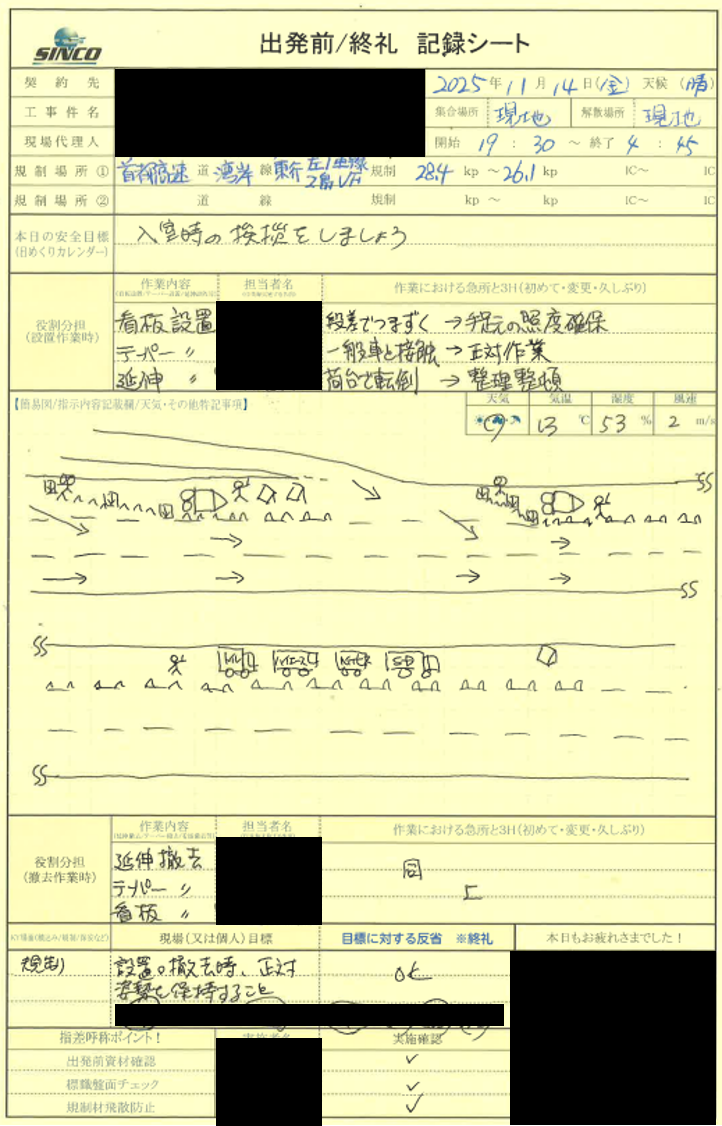 SINCO
出発前/終礼 記録シート
契約先
2025年11月14日(金) 天候(晴)
工事件名
集合場所 現地 解散場所 現地
現場代理人
開始 19:30 ~ 終了 4:45
規制場所① 首都高速 道 湾岸 線 東行 規制 28.4 kp ~ 26.1 kp IC~ IC
規制場所② 道 線 規制 kp ~ kp IC~ IC
本日の安全目標
(日めくりカレンダー)
入室時の挨拶をしましょう
役割分担
(設置作業時)
作業内容 担当者名 作業における急所と3H(初めて・変更・久しぶり)
看板設置 段差でつまずく→手足元の照度確保
テーパー 〃 一般車と接触→正対作業
延伸 〃 荷台で転倒→整理整頓
【簡易図/指示内容記載欄/天気・その他特記事項】
天気 気温 湿度 風速
13 ℃ 53 % 2 m/s
役割分担
(撤去作業時)
作業内容 担当者名 作業における急所と3H(初めて・変更・久しぶり)
延伸撤去 同
テーパー 〃 上
看板 〃
現場(又は個人)目標 目標に対する反省 ※終礼 本日もお疲れさまでした!
規制 設置・撤去時、正対
姿勢を保持すること
OK
指差呼称ポイント! 実施確認
出発前資材確認 ✓
標識盤面チェック ✓
規制材飛散防止 ✓